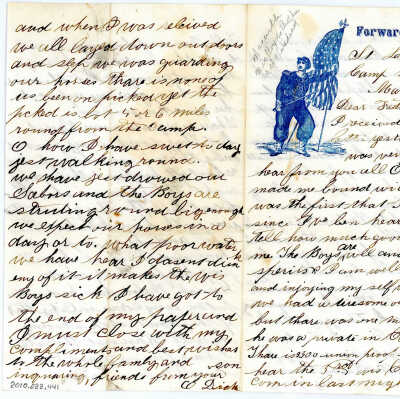 and when I was releived
we all layed down out doors
and slep we was guarding
our horses there is none of
us ben on picked yet the
picked is out 5 or 6 miles
round from the Camp.
O how I have swet to day
jest walking round.
we have jest drowed our
Sabors and the Boys are
struting round big enough
we expect our horses in a
day or to. what poor water
we have hear I dasent drink
eny of it it makes the wis
Boys sick I have got to
the end of my paper and
I must close with my
Compliments and best wishes
to the whole family and son
friend from your
C Dick
2010.222.441
Forward
St Lo
Camp
Ma
Dear Frie
I received
yest
was ver
hear from you all C
made me bound wi
was the first that S
since I've ben hear
tell how much good
me. The Boys are well and
sperits & I am well
and injoying my self
we had a awesome
but there was one m
he was a private in C
There is 2500
hear the 3rd wis C
com in last nigh